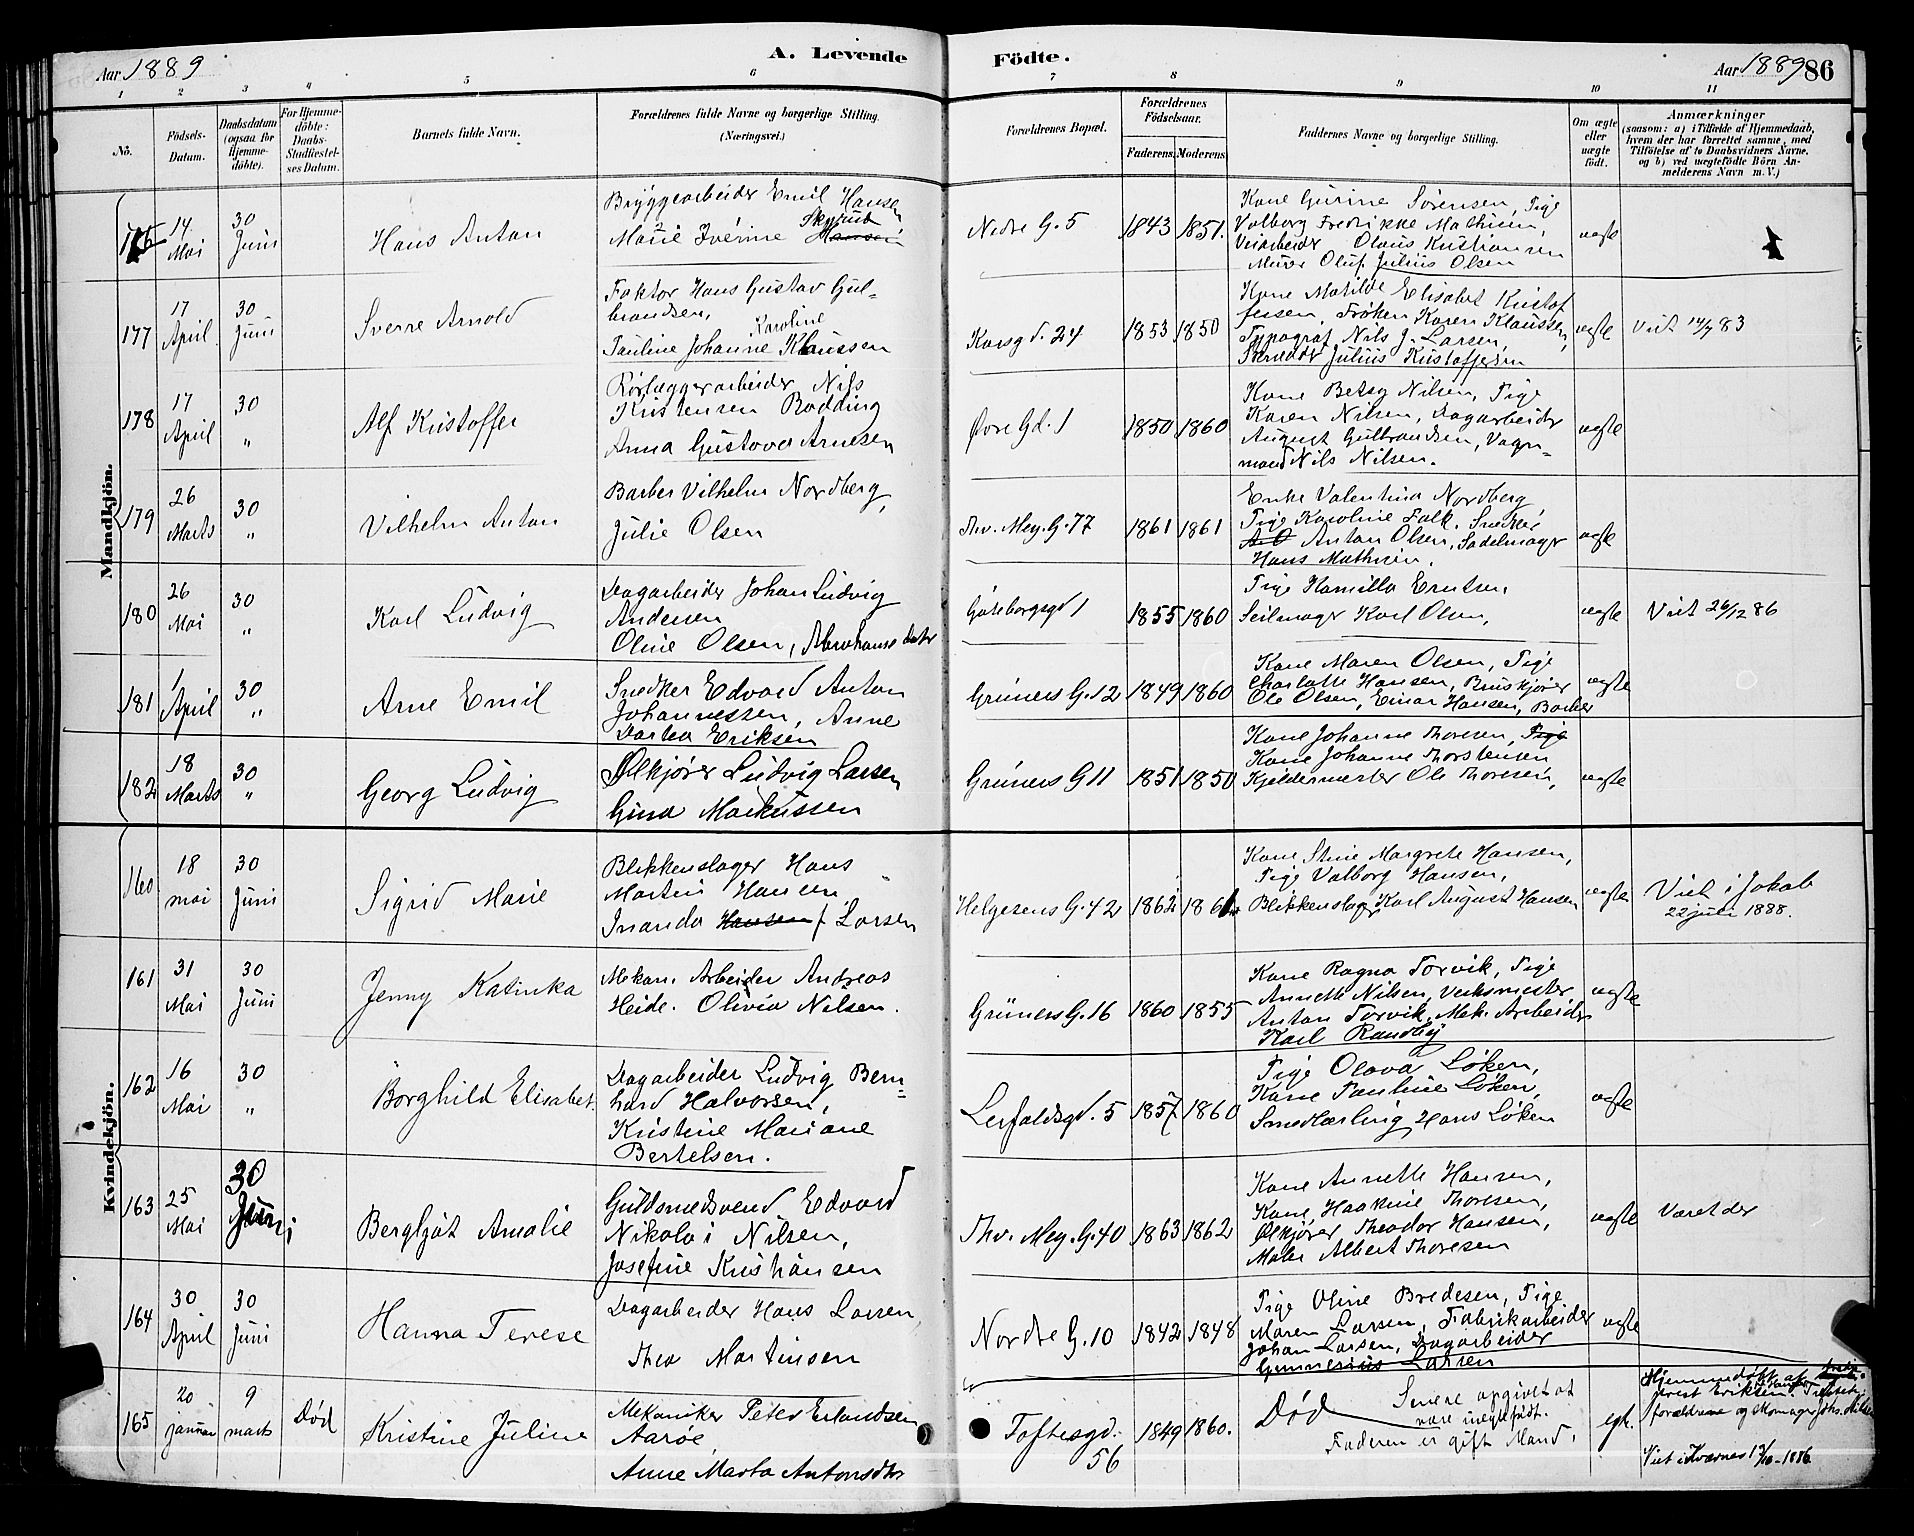 Aar 1889
A. Levende
Födte.
Aar 1889 86
1 2 3 4 5 6 7 8 9 10 11
No.
Födsels-
Datum.
Daabsdatum
(ogsaa for
Hjemme-
döbte).
For Hjemme-
döbte:
Daabs-
Stadfæstel-
ses Datum.
Barnets fulde Navn.
Forældrenes fulde Navne og borgerlige Stilling.
(Næringsvei.)
Forældrenes Bopæl.
Forældrenes
Födselsaar.
Faderens. Moderens.
Faddernes Navne og borgerlige Stilling.
Om ægte
eller
uægte
födt.
Anmærkninger
(saasom: a) i Tilfælde af Hjemmedaab,
hvem der har forrettet samme, med
Tilföielse af to Daabsvidners Navne,
og b) ved uægtefödte Börn An-
melderens Navn m. V.)
Mandkjön.
176
14
Mai
30
Juni
Hans Anton
Bryggearbeider Emil Hansen
Marie Iverine Hansen
Nedre G. 5
1843 1851.
Kone Gurine Sørensen, Pige
Valborg Fredrikke Mathisen,
Olaus Kristiansen
Murer Oluf Julius Olsen
ægte
177
17
April
30
Juni
Sverre Arnold
Faktor Hans Gustav Gul-
brandsen,
Karoline
Pauline Johanne Klaussen
Korsgd. 24
1853 1850
Kone Matilde Elisabet Kristof
fersen, Frøken Karen Klaussen,
Typograf Nils J. Larsen,
Julius Kristoffersen
ægte
Viet 14/7 83
178
17
April
30
"
Alf Kristoffer
Rørlæggerarbeider Nils
Kristensen Bodding
Anna Gustava Arnesen
Øvre Gd. 1
1850 1860
Kone Betsy Nilsen, Pige
Karen Nilsen, Dagarbeider
August Gulbrandsen, Vogn-
mand Nils Nilsen.
ægte
179
26
Marts
30
"
Vilhelm Anton
Barber Vilhelm Nordberg,
Julie Olsen
Thv. Mey. G. 77
1861 1861
Enke Valentina Nordberg
Pige Karoline Falk, Snedker
Anton Olsen, Sadelmager
Hans Mathisen.
ægte
180
26
Mai
30
"
Karl Ludvig
Dagarbeider Johan Ludvig
Andersen
Oline Olsen, Abrahamsdatr
Göteborgsgd 1
1855 1860
Pige Hamilla Erntsen,
Seilmager Karl Olsen,
ægte
Viet 26/12 86
181
1
April
30
"
Arne Emil
Snedker Edvard Anton
Johannessen, Anne
Dortea Eriksen
Grüners G. 12
1849 1860
Kone Maren Olsen, Pige
Charlotte Hansen, Bruskjører
Ole Olsen, Einar Hansen, Barber
ægte
182
18
Marts
30
"
Georg Ludvig
Ølkjører Ludvig Larsen
Gina Markussen
Grüners G 11
1851 1850
Kone Johanne Thoresen, Pige
Kone Johanne Thorstensen
Kjeldermester Ole Thoresen,
ægte
Kvindekjön.
160
18
mai
30
Juni
Sigrid Marie
Blikkenslager Hans
Martin Hansen
Inanda Hansen f Larsen
Helgesens G. 42
1862
Kone Stine Margrete Hansen,
Pige Valborg Hansen,
Blikkenslager Karl August Hansen
ægte
Viet i Jakob
22 juli 1888.
161
31
Mai
30
Juni
Jenny Katinka
Mekan. Arbeider Andreas
Heide. Olivia Nilsen.
Grüners G. 16
1860 1855
Kone Ragna Torvik, Pige
Annette Nilsen, Verksmester
Anton Torvik, Mek. Arbeider
Karl Randby
ægte
162
16
Mai
30
"
Borghild Elisabet.
Dagarbeider Ludvig Bern-
hard Halvorsen,
Kristine Mariane
Bertelsen.
Leirfaldsgd. 5
1857 1860
Pige Olava Løken,
Kone Pauline Løken,
Smedlærling Hans Løken
ægte
163
25
Mai
30
Juni
Bergljot Amalie
Guldsmedsvend Edvard
Nikolai Nilsen,
Josefine Kristiansen
Thv. Mey. G. 40
1863 1862
Kone Annette Hansen,
Kone Haakine Thoresen,
Ølkjører Theodor Hansen,
Maler Albert Thoresen
ægte
Været der
164
30
April
30
Juni
Hanna Terese
Dagarbeider Hans Larsen,
Thea Martinsen
Nordre G. 10
1842 1848
Pige Oline Bredesen, Pige
Maren Larsen, Fabrikarbeider
Johan Larsen, Dagarbeider
Gunnerius Larsen
ægte
165
20
januar
9
marts
Død
Kristine Juline
Mekaniker Peter Erlandsen
Aarøe,
Anne Marta Antonsdtr
Toftesgd.
56
1849 1860.
Død
Senere opgivet at
være uegtefødt.
Faderen er gift Mand,
egte.
Hjemmedøbt af
prest Eriksen.
forældrene og Skomager Johs. Nilsen
Viet i Kværnes 13/10-1886